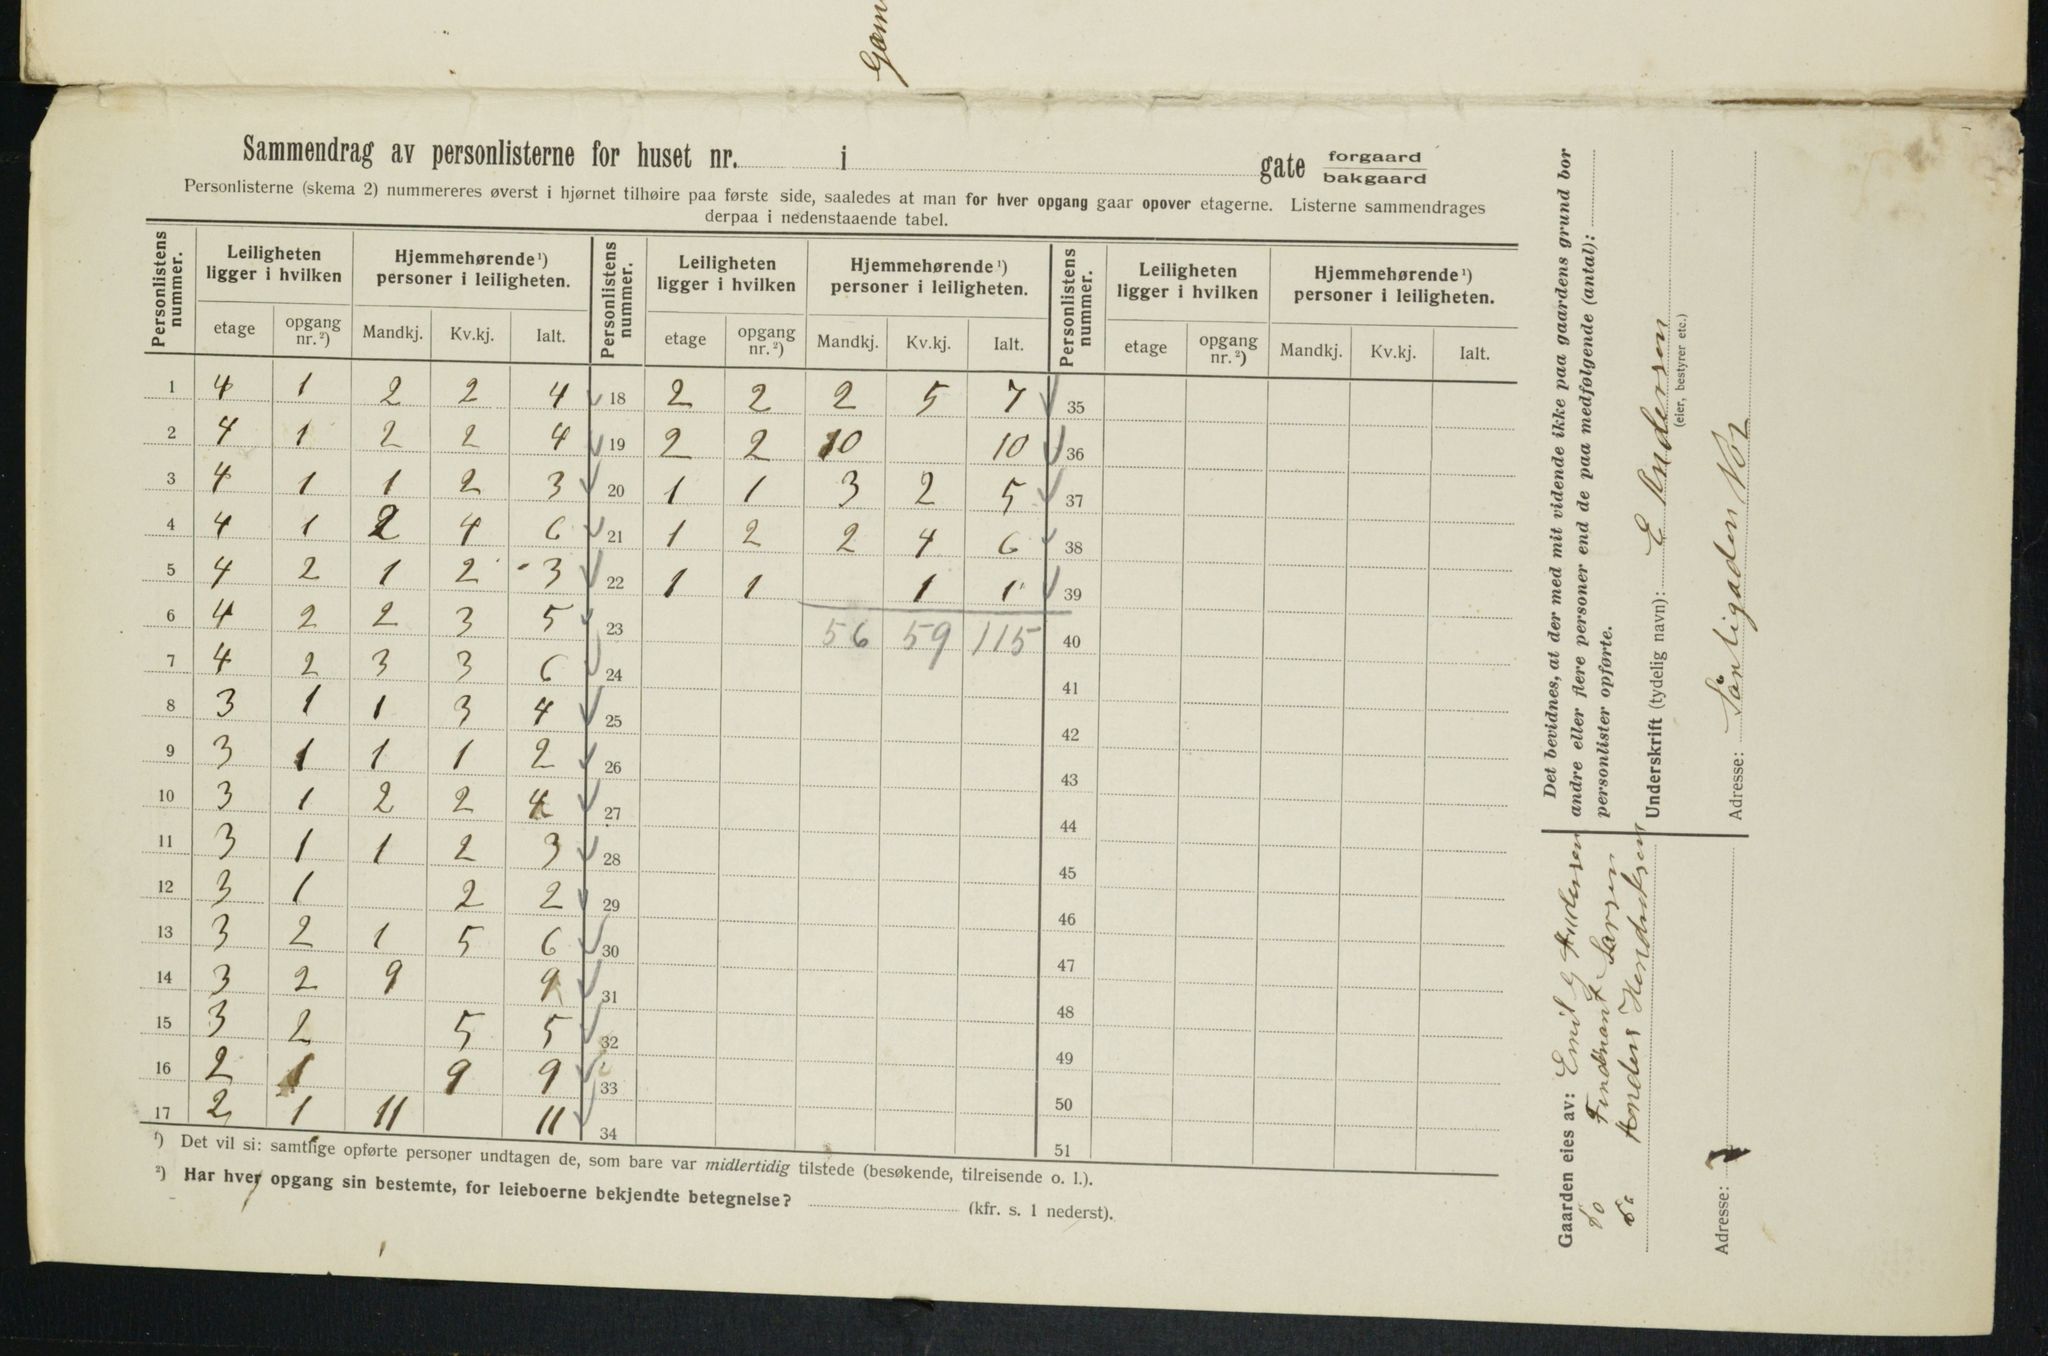 Gam
Sammendrag av personlisterne for huset nr. i gate forgaard bakgaard
Personlisterne (skema 2) nummereres øverst i hjørnet tilhøire paa første side, saaledes at man for hver opgang gaar opover etagerne. Listerne sammendrages
derpaa i nedenstaaende tabel.
Personlistens nummer. Leiligheten ligger i hvilken Hjemmehørende ¹) personer i leiligheten. Personlistens nummer. Leiligheten ligger i hvilken Hjemmehørende ¹) personer i leiligheten. Personlistens nummer. Leiligheten ligger i hvilken Hjemmehørende ¹) personer i leiligheten.
etage opgang nr. ²) Mandkj. Kv.kj. Ialt. etage opgang nr. ²) Mandkj. Kv.kj. Ialt. etage opgang nr. ²) Mandkj. Kv.kj. Ialt.
1 4 1 2 2 4 18 2 2 2 5 7 35
2 4 1 2 2 4 19 2 2 10 10 36
3 4 1 1 2 3 20 1 1 3 2 5 37
4 4 1 2 4 6 21 1 2 2 4 6 38
5 4 2 1 2 3 22 1 1 1 1 39
6 4 2 2 3 5 23 56 59 115 40
7 4 2 3 3 6 24 41
8 3 1 1 3 4 25 42
9 3 1 1 1 2 26 43
10 3 1 2 2 4 27 44
11 3 1 1 2 3 28 45
12 3 1 2 2 29 46
13 3 2 1 5 6 30 47
14 3 2 9 9 31 48
15 3 2 5 5 32 49
16 2 1 9 9 33 50
17 2 1 11 11 34 51
¹) Det vil si: samtlige opførte personer undtagen de, som bare var midlertidig tilstede (besøkende, tilreisende o. l.).
²) Har hver opgang sin bestemte, for leieboerne bekjendte betegnelse? (kfr. s. 1 nederst).
Det bevidnes, at der med mit vidende ikke paa gaardens grund bor
andre eller flere personer end de paa medfølgende (antal):
personlister opførte.
Underskrift (tydelig navn): E Andersen
(eier, bestyrer etc.)
Adresse: No 2
Gaarden eies av: Emil G Andersen
do Ferdinand Larsen
do Anders Hendriksen
Adresse: